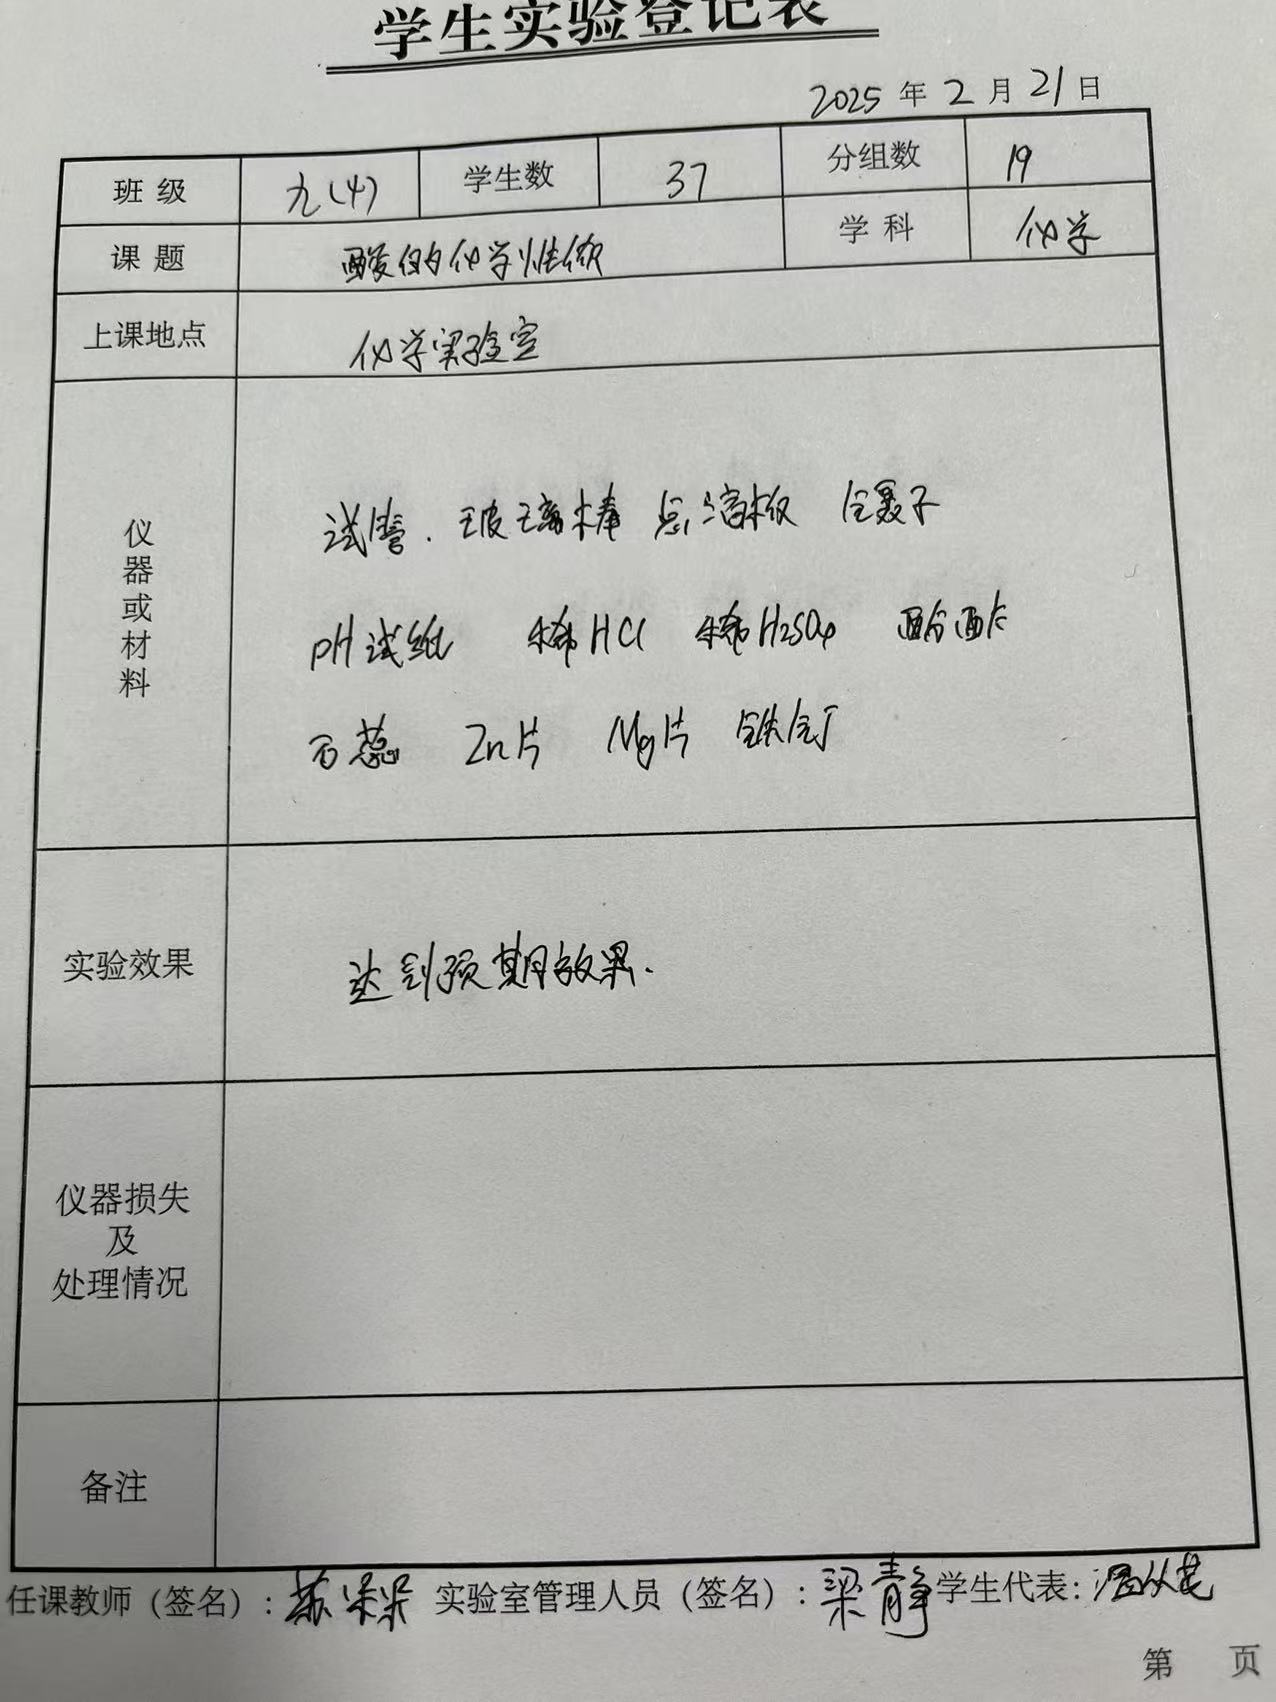 学生实验登记表
2025 年 2 月 21 日
班级 九(4) 学生数 37 分组数 19
课题 酸的化学性质 学科 化学
上课地点 化学实验室
仪器或材料
试管. 玻璃棒 点滴板 镊子
pH试纸 稀HCl 稀H2SO4 酚酞
石蕊 Zn片 Mg片 铁钉
实验效果 达到预期效果.
仪器损失
及
处理情况
备注
任课教师（签名）: 苏 实验室管理人员（签名）: 梁静 学生代表:
第 页